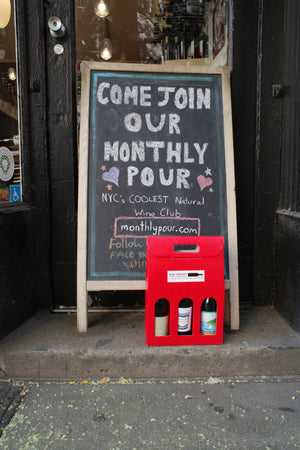 COME JOIN
OUR
MONTHLY
POUR
NYC's COOLEST Natural
Wine Club
monthlypour.com
Follow
FACE